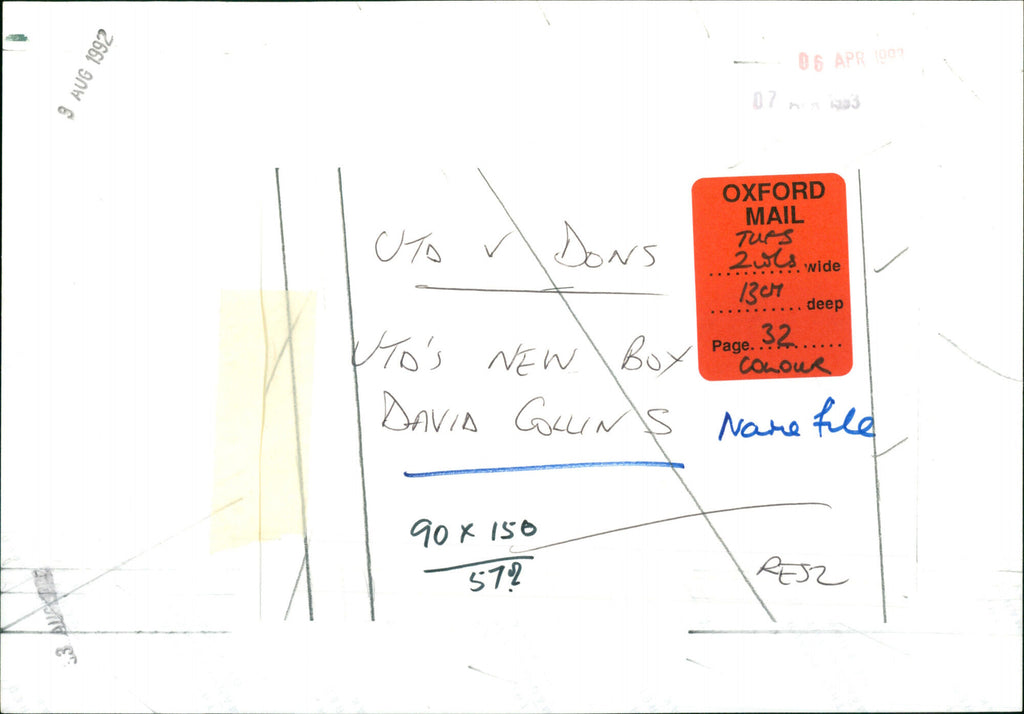 3 AUG 1992
06 APR 1993
07 1993
OXFORD
MAIL
TUES
2 wide
13cm deep
Page 32
COLOUR
UTD V DONS
UTD'S NEW BOY
DAVID COLLINS
Name file
90 x 150
57%